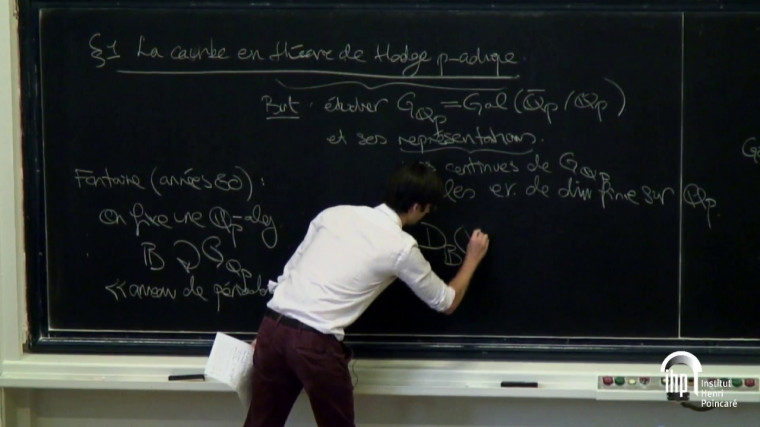 §1 La courbe en théorie de Hodge p-adique.
But : étudier G_{Q_p} = Gal(Q̄_p / Q_p)
et ses représentations.
continues de G_{Q_p}
les e.v. de dim finie sur Q_p.
Fontaine (années 80) :
On fixe une Q_p-alg
B ⊃ G_{Q_p}
« anneau de périodes
D_B(
ihp Institut
Henri
Poincaré